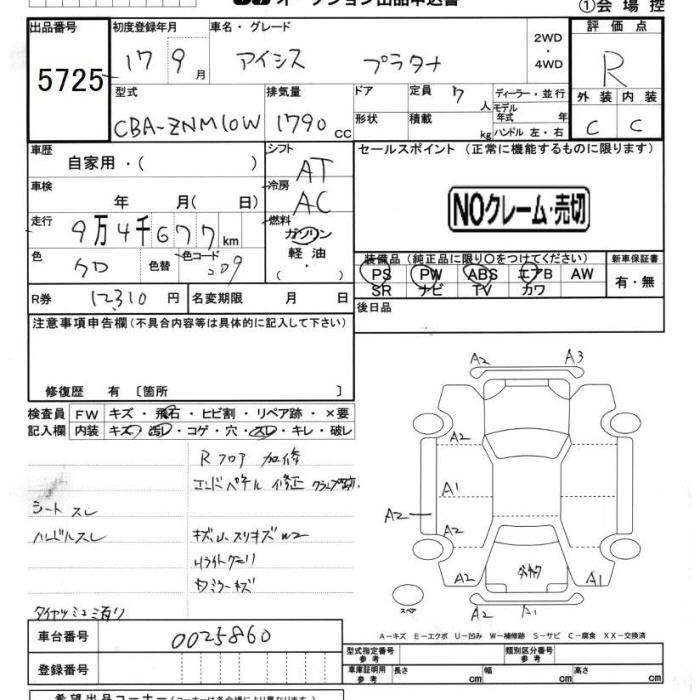 オークション出品申込書
①会場控
出品番号 初度登録年月 車名・グレード 2WD ・ 4WD 評価点
5725 17 9月 アイシス プラタナ R
型式 排気量 ドア 定員 7人 ディーラー・並行 外装 内装
CBA-ZNM10W 1790cc 形状 積載 kg モデル年式 年 ハンドル 左・右 C C
車歴 自家用・( ) シフト AT セールスポイント(正常に機能するものに限ります)
車検 年 月( 日) 冷房 AC
NOクレーム・売切
走行 9万4千677km 燃料 ガソリン 軽油・( )
色 クロ 色替 色コード 209
装備品(純正品に限り○をつけてください) 新車保証書
PS PW ABS エアB AW 有・無
SR ナビ TV カワ
R券 12310円 名変期限 月 日
後日品
注意事項申告欄(不具合内容等は具体的に記入して下さい)
修復歴 有 〔箇所 〕
検査員 FW キズ・飛石・ヒビ割・リペア跡・×要
記入欄 内装 キズ・汚レ・コゲ・穴・スレ・キレ・破レ
Rフロア 加修
エンドパネル 修正
シート スレ
ハンドルスレ
タイヤ
A2 A3
A2
A1
A2
A2
A2 A1
A2 A1
スペア
A-キズ E-エクボ U-凹み W-補修跡 S-サビ C-腐食 XX-交換済
車台番号 0025860
登録番号
型式指定番号 参考 類別区分番号 参考
車庫証明用 参考 長さ cm 幅 cm 高さ cm
希望出品コーナー(コーナーは各会場により異なります)